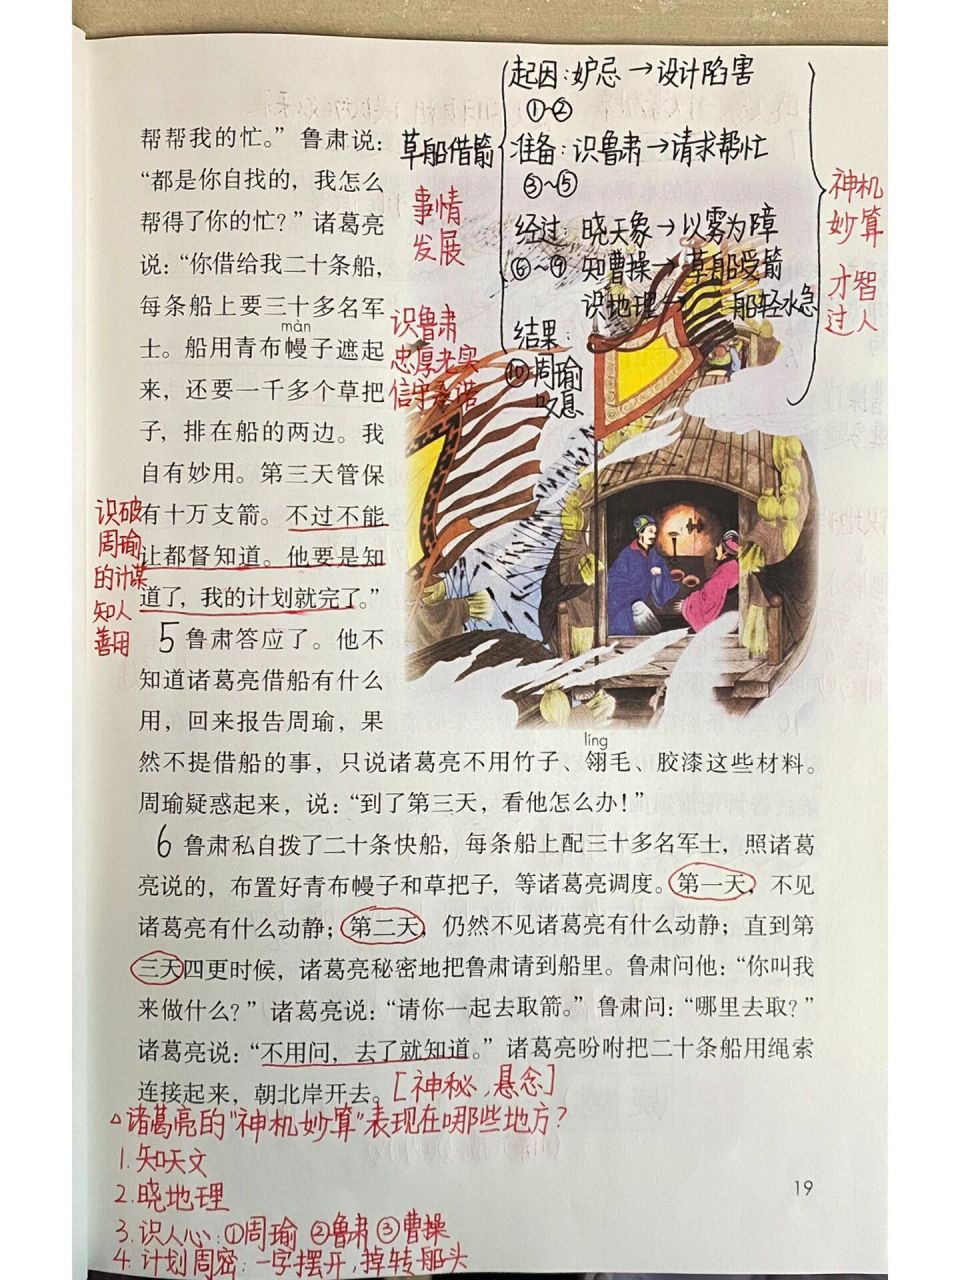 起因:妒忌→设计陷害
①~②
草船借箭
准备:识鲁肃→请求帮忙
③~⑤
经过:晓天象→以雾为障
⑥~⑨ 知曹操→草船受箭
识地理→ 船轻水急
结果:
⑩周瑜
叹息
神机
妙算
才智
过人
事情
发展
识鲁肃
忠厚老实
信守承诺
帮帮我的忙。”鲁肃说:
“都是你自找的,我怎么
帮得了你的忙?”诸葛亮
说:“你借给我二十条船,
每条船上要三十多名军
màn
士。船用青布幔子遮起
来,还要一千多个草把
子,排在船的两边。我
自有妙用。第三天管保
有十万支箭。不过不能
让都督知道。他要是知
道了,我的计划就完了。”
识破
周瑜
的计谋
知人
善用
5 鲁肃答应了。他不
知道诸葛亮借船有什么
用,回来报告周瑜,果
líng
然不提借船的事,只说诸葛亮不用竹子、翎毛、胶漆这些材料。
周瑜疑惑起来,说:“到了第三天,看他怎么办!”
6 鲁肃私自拨了二十条快船,每条船上配三十多名军士,照诸葛
亮说的,布置好青布幔子和草把子,等诸葛亮调度。第一天,不见
诸葛亮有什么动静;第二天,仍然不见诸葛亮有什么动静;直到第
三天四更时候,诸葛亮秘密地把鲁肃请到船里。鲁肃问他:“你叫我
来做什么?”诸葛亮说:“请你一起去取箭。”鲁肃问:“哪里去取?”
诸葛亮说:“不用问,去了就知道。”诸葛亮吩咐把二十条船用绳索
连接起来,朝北岸开去。[神秘,悬念]
△诸葛亮的“神机妙算”表现在哪些地方?
1.知天文
2.晓地理
3.识人心:①周瑜 ②鲁肃 ③曹操
4.计划周密:一字摆开,掉转船头
19